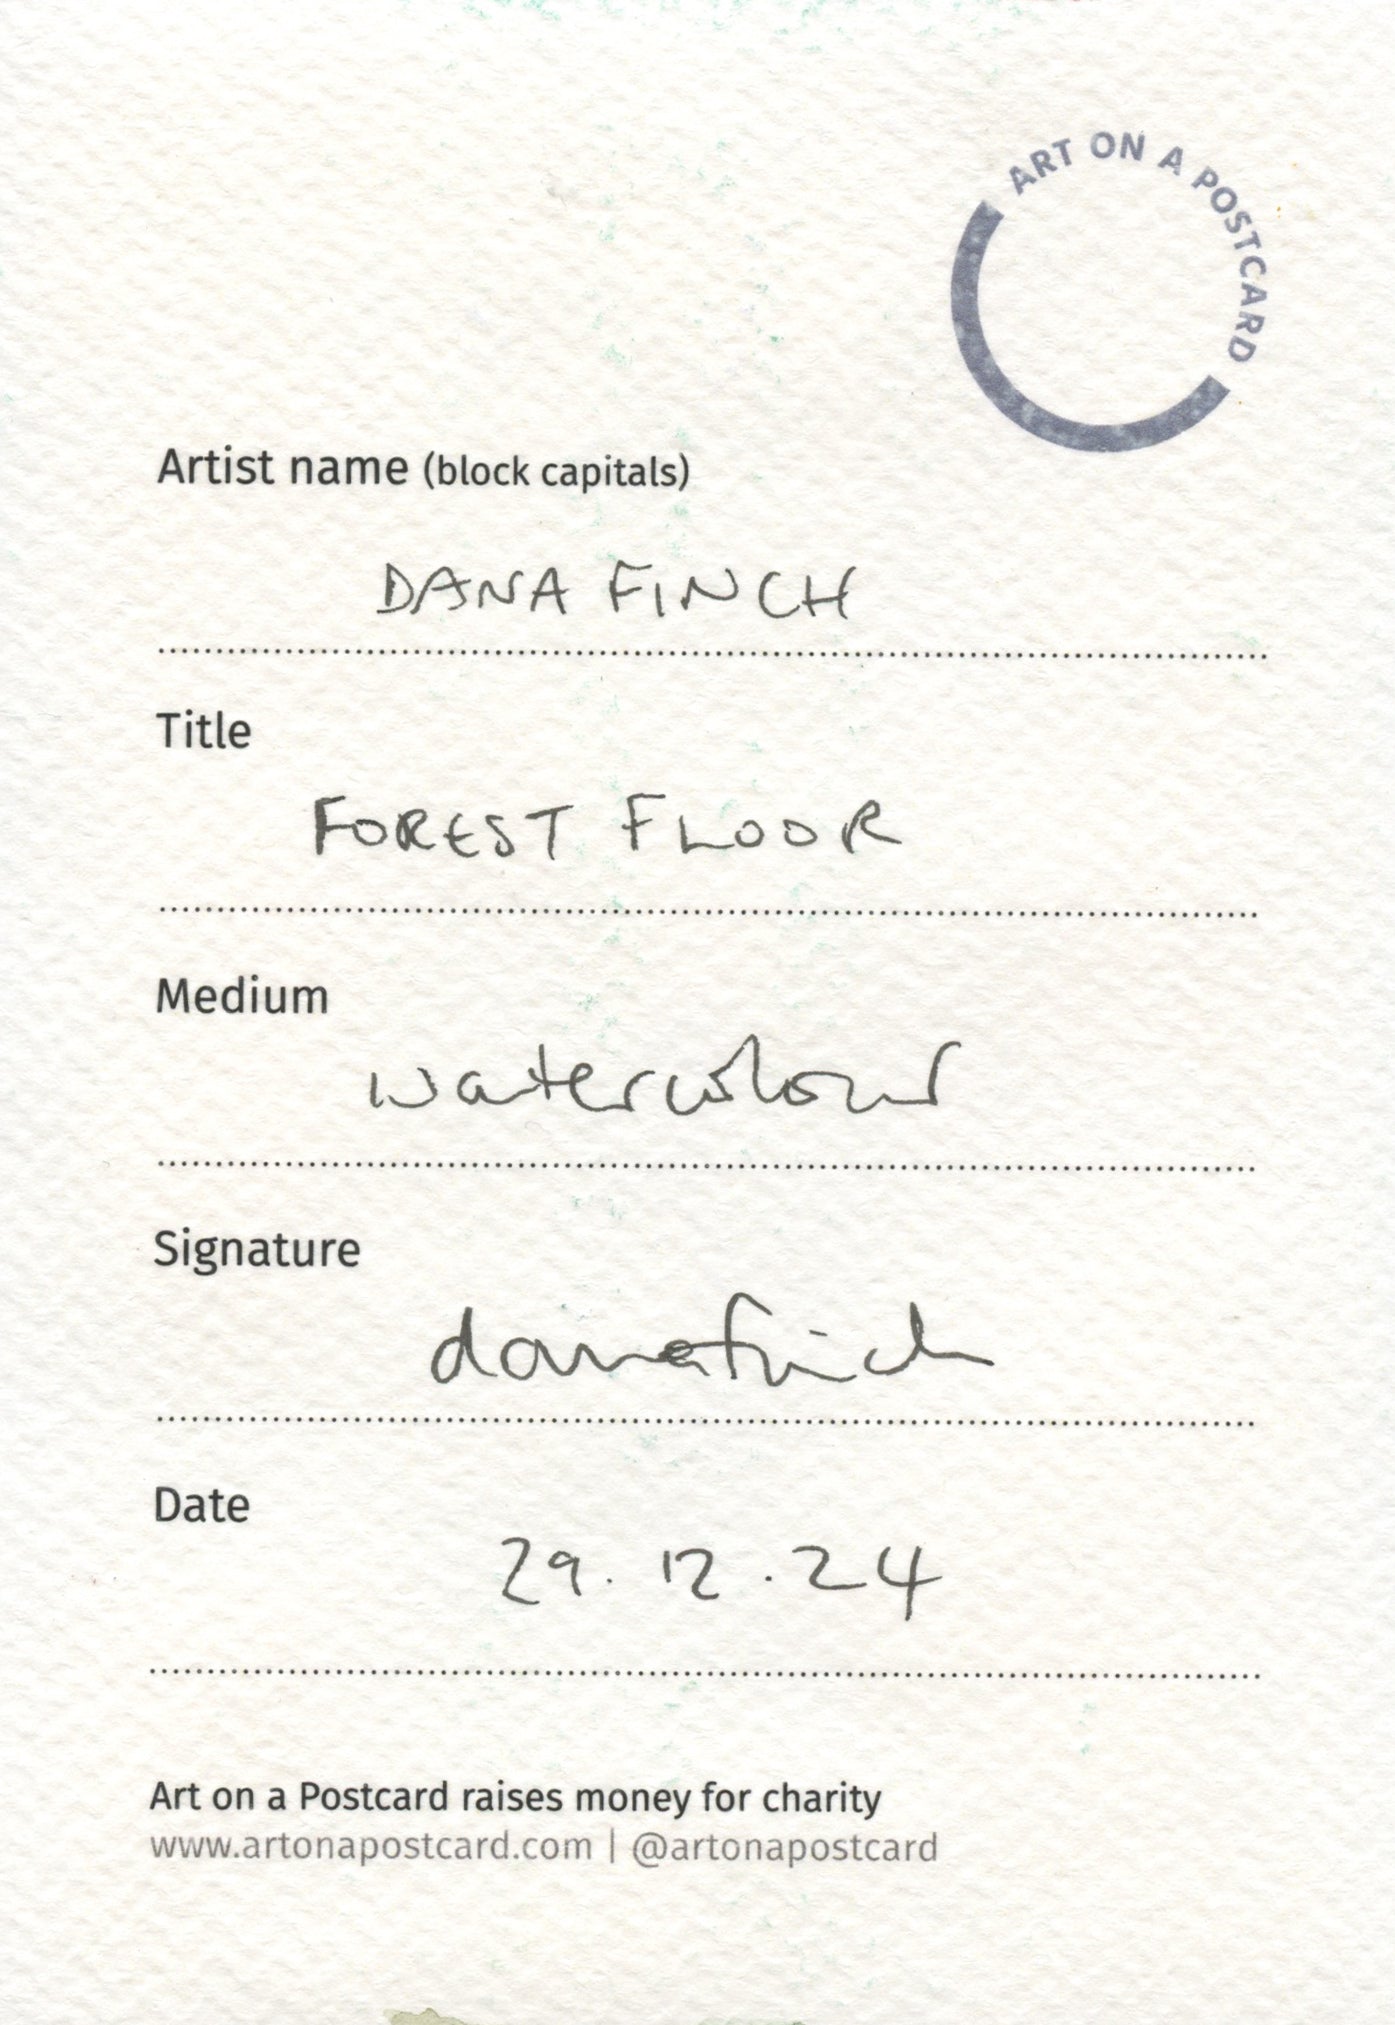 ART ON A POSTCARD
Artist name (block capitals)
DANA FINCH
Title
FOREST FLOOR
Medium
watercolour
Signature
danafinch
Date
29.12.24
Art on a Postcard raises money for charity
www.artonapostcard.com | @artonapostcard